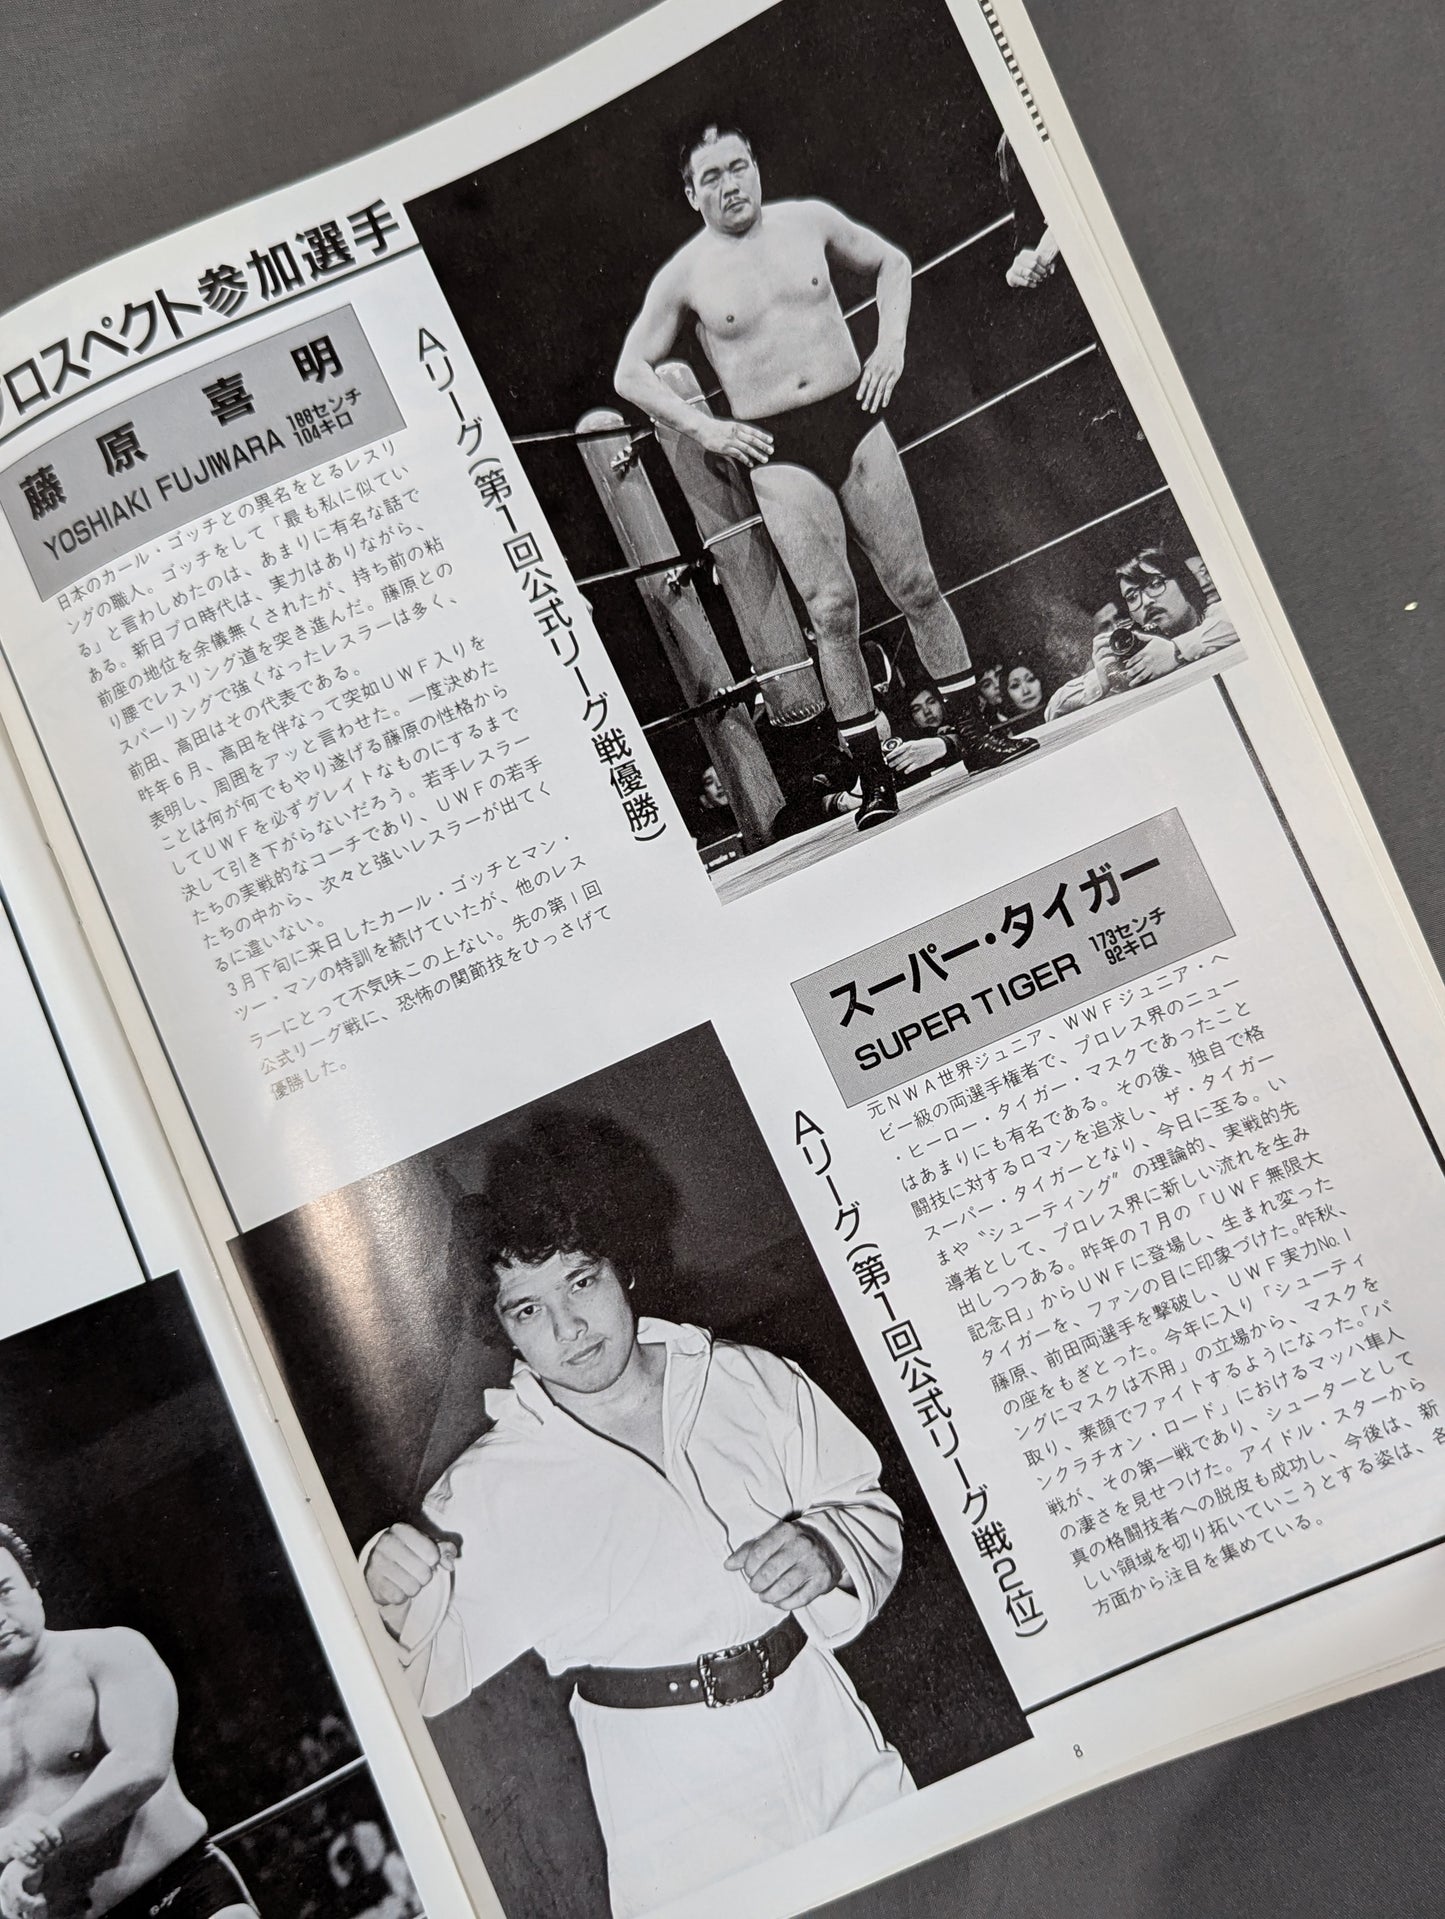 プロスペクト参加選手
藤原喜明
YOSHIAKI FUJIWARA
188センチ
104キロ
日本のカール・ゴッチとの異名をとるレスリ
ングの職人。ゴッチをして「最も私に似てい
る」と言わしめたのは、あまりに有名な話で
ある。新日プロ時代は、実力はありながら、
前座の地位を余儀無くされたが、持ち前の粘
り腰でレスリング道を突き進んだ。藤原との
スパーリングで強くなったレスラーは多く、
前田、高田はその代表である。
昨年6月、高田を伴なって突如UWF入りを
表明し、周囲をアッと言わせた。一度決めた
ことは何が何でもやり遂げる藤原の性格から
してUWFを必ずグレイトなものにするまで
決して引き下がらないだろう。若手レスラー
たちの実戦的なコーチであり、UWFの若手
たちの中から、次々と強いレスラーが出てく
るに違いない。
3月下旬に来日したカール・ゴッチとマン・
ツー・マンの特訓を続けていたが、他のレス
ラーにとって不気味この上ない。先の第1回
公式リーグ戦に、恐怖の関節技をひっさげて
優勝した。
Aリーグ(第1回公式リーグ戦優勝)
スーパー・タイガー
SUPER TIGER
173センチ
92キロ
元NWA世界ジュニア、WWFジュニア・ヘ
ビー級の両選手権者で、プロレス界のニュー
・ヒーロー・タイガー・マスクであったこと
はあまりにも有名である。その後、独自で格
闘技に対するロマンを追求し、ザ・タイガー
スーパー・タイガーとなり、今日に至る。い
まや〝シューティング〞の理論的、実戦的先
導者として、プロレス界に新しい流れを生み
出しつつある。昨年の7月の「UWF無限大
記念日」からUWFに登場し、生まれ変った
タイガーを、ファンの目に印象づけた。昨秋、
藤原、前田両選手を撃破し、UWF実力No.1
の座をもぎとった。今年に入り「シューティ
ングにマスクは不用」の立場から、マスクを
取り、素顔でファイトするようになった。「パ
ンクラチオン・ロード」におけるマッハ隼人
戦が、その第一戦であり、シューターとして
の凄さを見せつけた。アイドル・スターから
真の格闘技者への脱皮も成功し、今後は、新
しい領域を切り拓いていこうとする姿は、各
方面から注目を集めている。
Aリーグ(第1回公式リーグ戦2位)
8